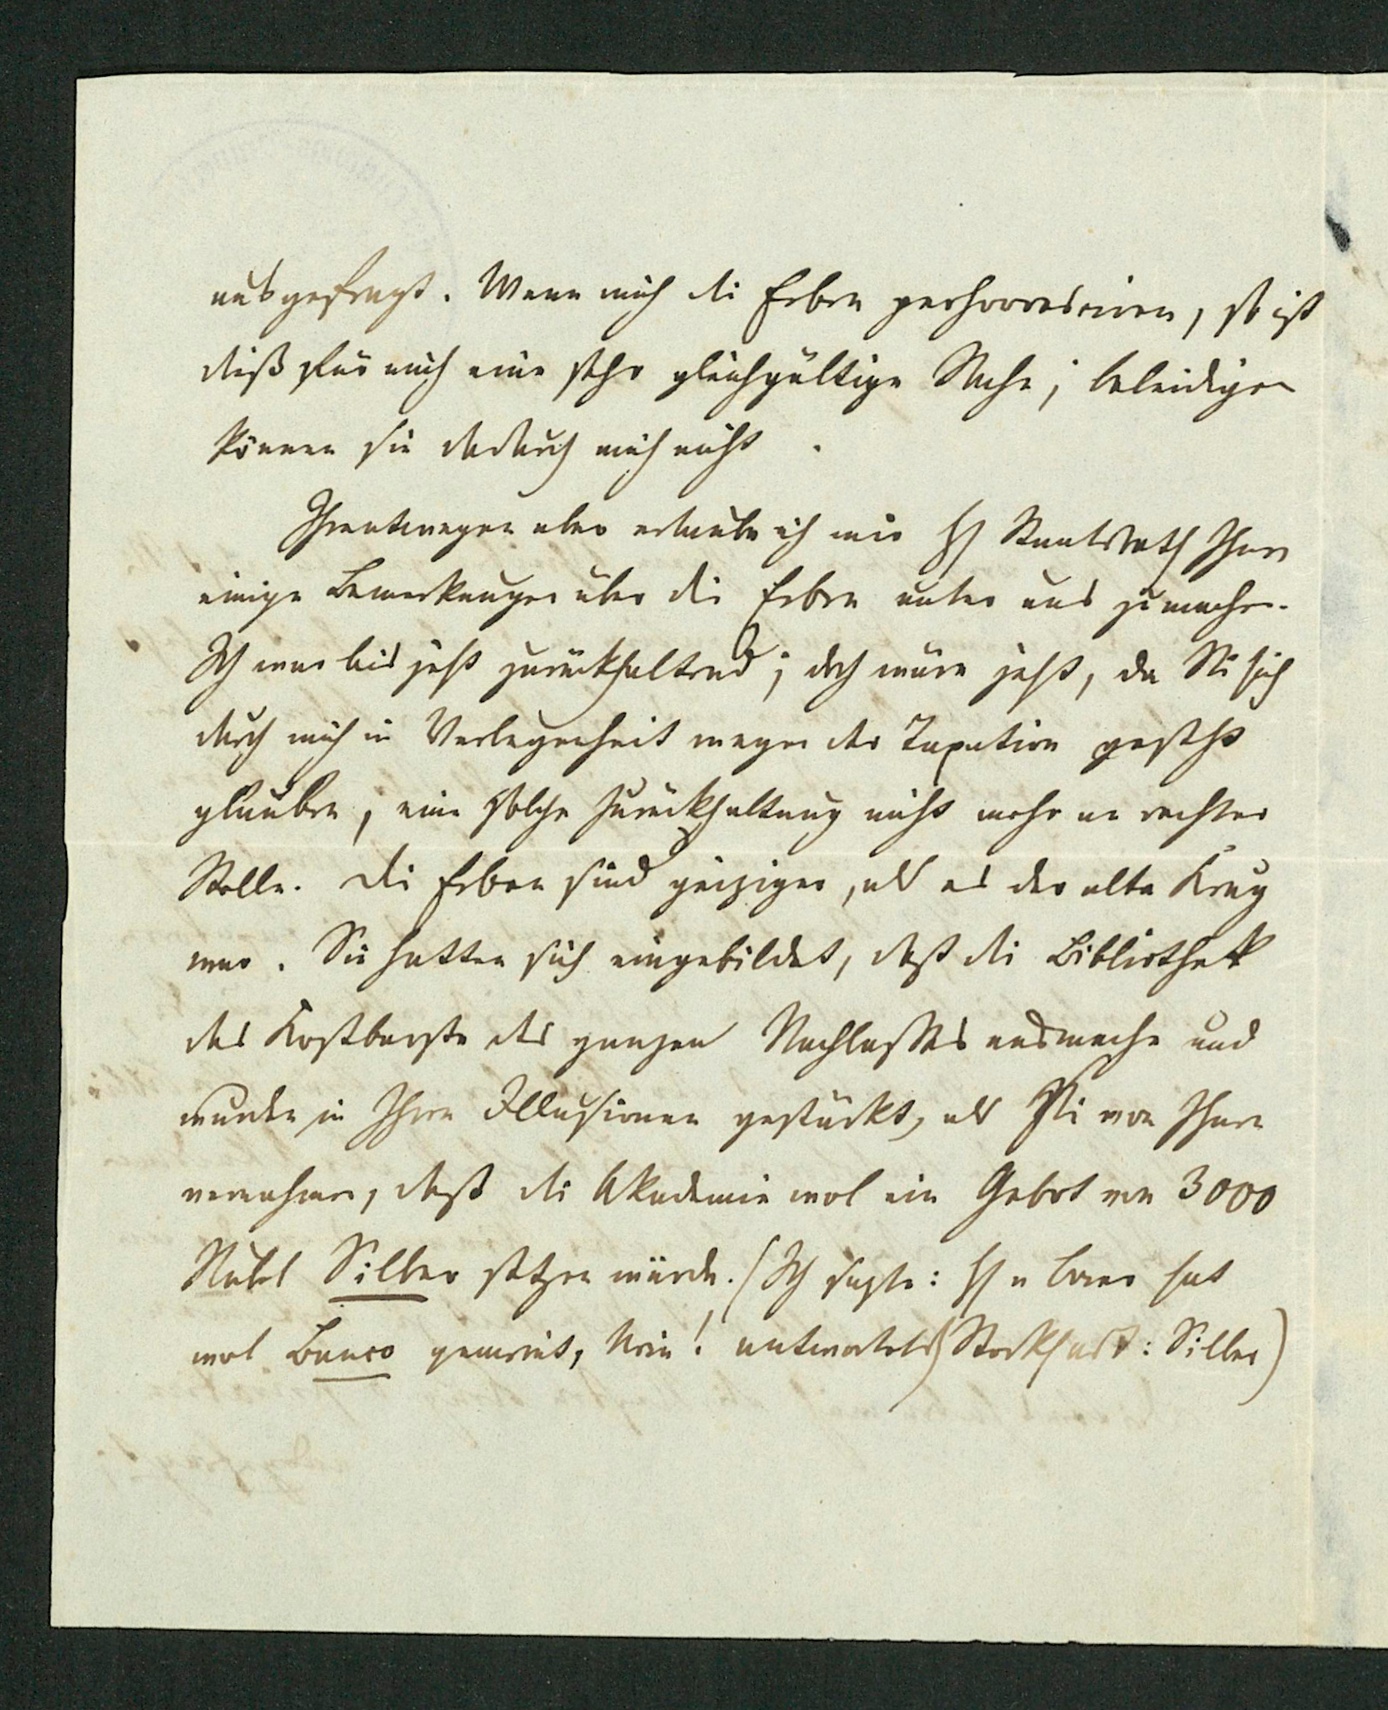 ausgefragt. Wenn mich die Erben perhorresciren, so ist
dieß für mich eine sehr gleichgültige Sache; beleidigen
können sie dadurch mich nicht.
Ihrentwegen aber erlaube ich mir H Staatsrath Ihnen
einige Bemerkungen über die Erben unter uns zu machen.
Ich war bis jetzt zurückhaltend; doch wäre jetzt, da Sie sich
durch mich in Verlegenheit wegen der Taxation gesetzt
glauben, eine solche Zurückhaltung nicht mehr an rechter
Stelle. Die Erben sind geiziger, als es der alte Krug
war. Sie hatten sich eingebildet, daß die Bibliothek
das Kostbarste des ganzen Nachlasses ausmache und
wurden in Ihren Illusionen gestärkt, als Sie von Ihnen
vernahmen, daß die Akademie wol ein Gebot von 3000
Rubel Silber setzen würde. (Ich sagte: H v Baer hat
wol Banco gemeint, Nein! antwortete Stockhardt: Silber)